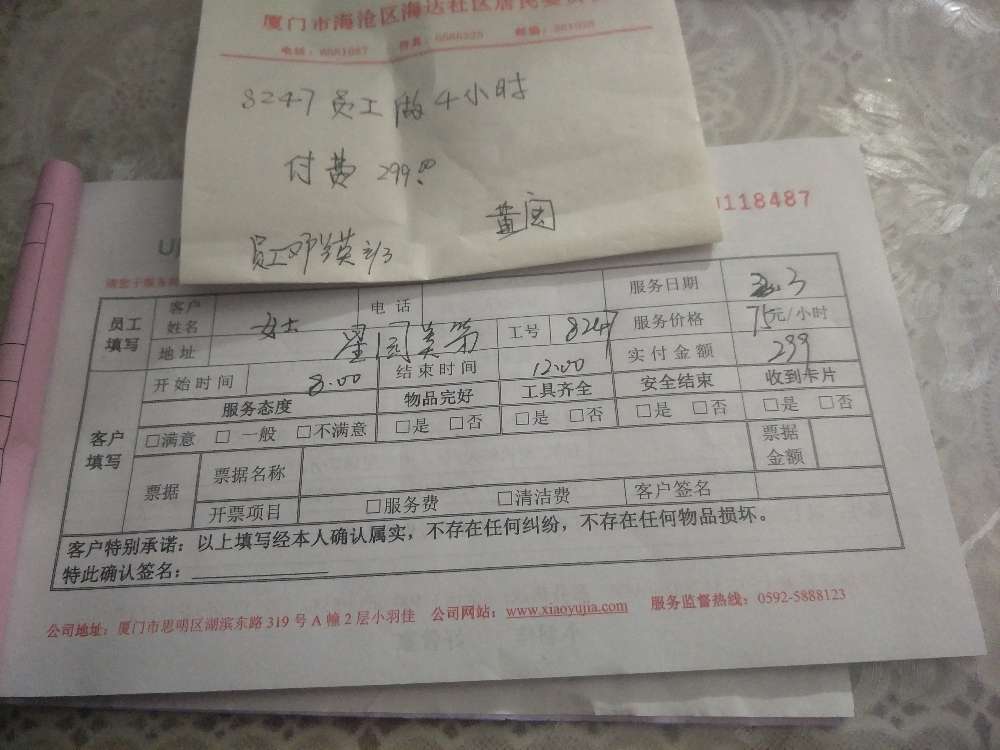 厦门市海沧区海达社区居民委
8247员工做4小时
付费 299.00
员工邓
118487
员工填写 客户姓名 女士 电话 服务日期
地址 工号 8247 服务价格 75元/小时
开始时间 8.00 结束时间 12.00 实付金额 299
客户填写 服务态度 物品完好 工具齐全 安全结束 收到卡片
□满意 □一般 □不满意 □是 □否 □是 □否 □是 □否 □是 □否
票据 票据名称 票据金额
开票项目 □服务费 □清洁费 客户签名
客户特别承诺：以上填写经本人确认属实，不存在任何纠纷，不存在任何物品损坏。
特此确认签名：
公司地址：厦门市思明区湖滨东路319号A幢2层小羽佳 公司网站：www.xiaoyujia.com 服务监督热线：0592-5888123